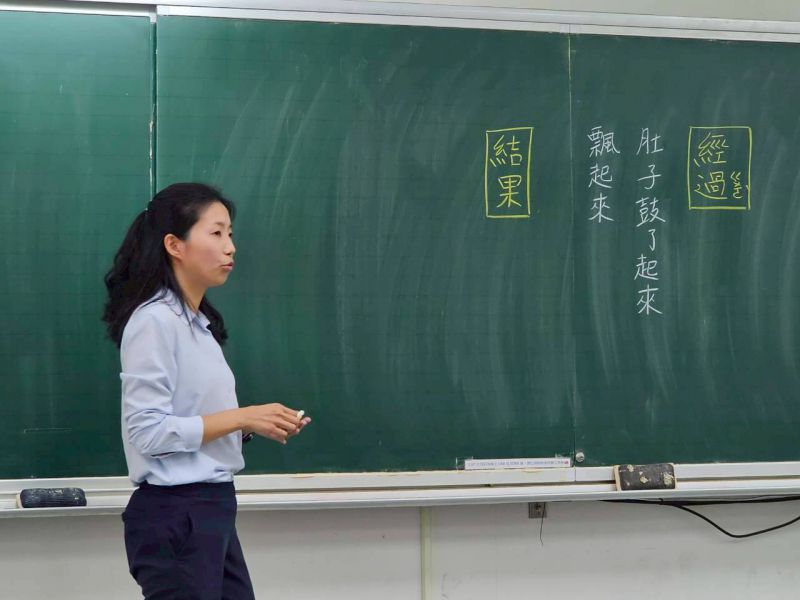 經過
肚子鼓了起來
飄起來
結果